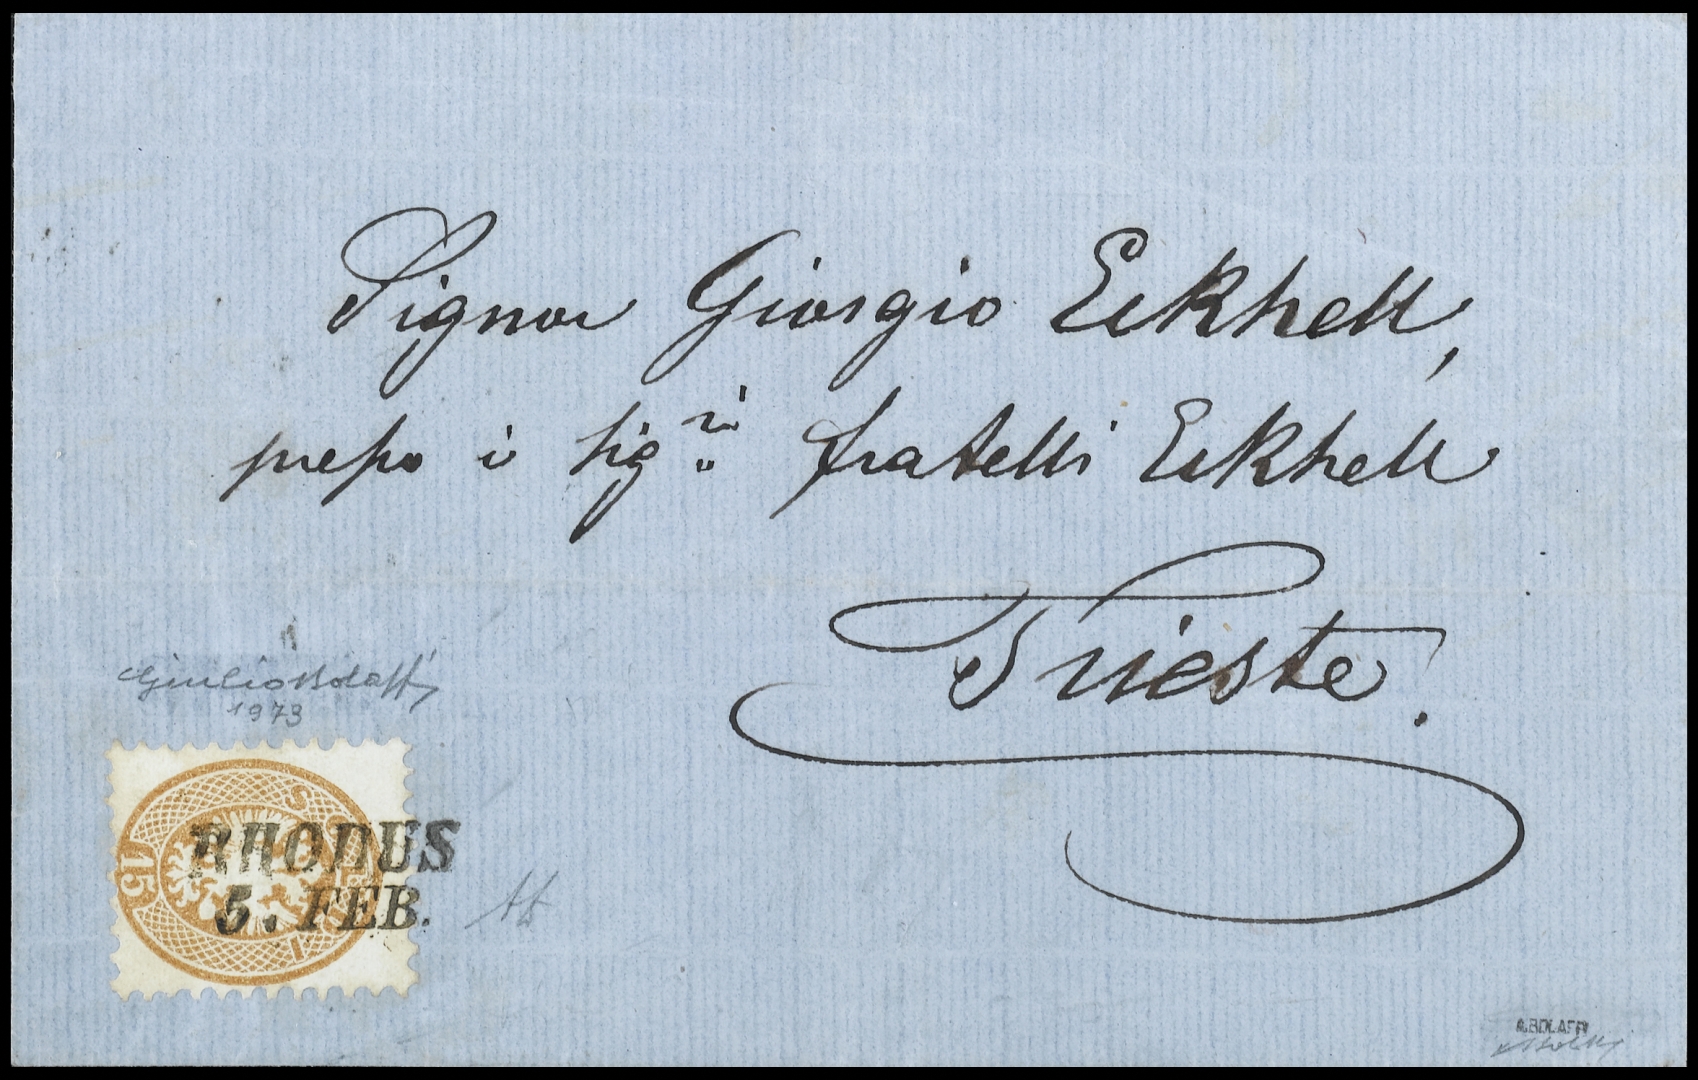 Signor Giorgio Eckhell,
presso i sig.ri fratelli Eckhell
Trieste.
Giulio Bolaffi
1973
15 SOLDI
RHODUS
5. FEB.
A. BOLAFFI